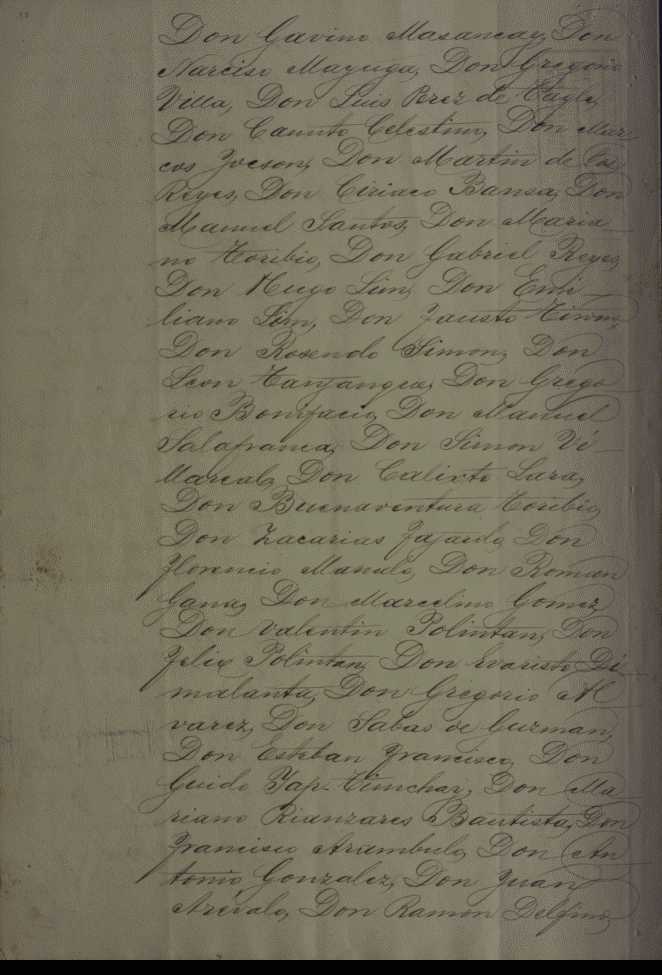 Don Gavino Masancay, Don
Narciso Mayuga, Don Gregorio
Villa, Don Luis Perez de Tagle,
Don Canuto Celestino, Don Mar-
cos Jocson, Don Martin de los
Reyes, Don Ciriaco Bansa, Don
Manuel Santos, Don Maria-
no Toribio, Don Gabriel Reyes,
Don Hugo Lim, Don Emi-
liano Lim, Don Fausto
Don Rosendo Simon, Don
Leon Tanjangea, Don Grego-
rio Bonifacio, Don Manuel
Salafranca, Don Simon Vi-
llareal, Don Calixto Lara,
Don Buenaventura Toribio,
Don Zacarias Fajardo, Don
Florencio Manalo, Don Roman
Gana, Don Marcelino Gomez,
Don Valentin Polintan, Don
Felix Polintan, Don Evaristo Di-
malanta, Don Gregorio Al-
varez, Don Sabas de Guzman,
Don Esteban Francisco, Don
Guido Yap-Timchay, Don Ma-
riano Rianzares Bautista, Don
Francisco Arambulo, Don An-
tonio Gonzalez, Don Juan
Arévalo, Don Ramon Delfino,